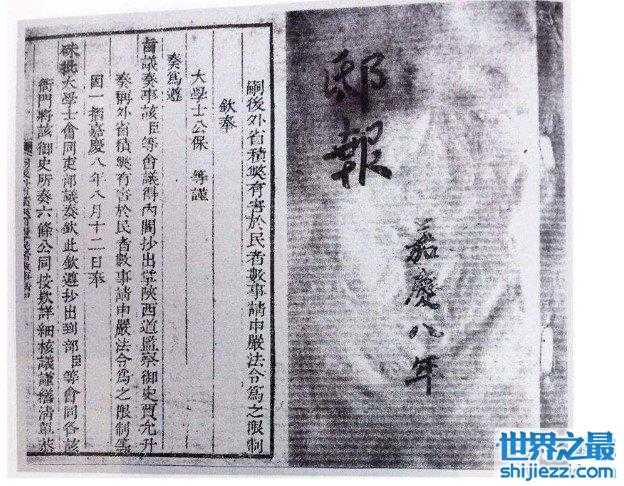 邸報
嘉慶八年
嗣後外省積獘有害於民者數事請申嚴法令為之限制
欽奉
大學士公保 等謹
奏為遵
旨議奏事該臣等會議得內閣抄出掌陝西道監察御史賈允升
奏稱外省積獘有害於民者數事請申嚴法令為之限制等
因一摺嘉慶八年八月十二日奉
硃批大學士會同吏部議奏欽此欽遵抄出到部臣等會同各該
衙門將該御史所奏六條公同按款詳細核議謹繕清單恭
世界之最
shijiezz.com